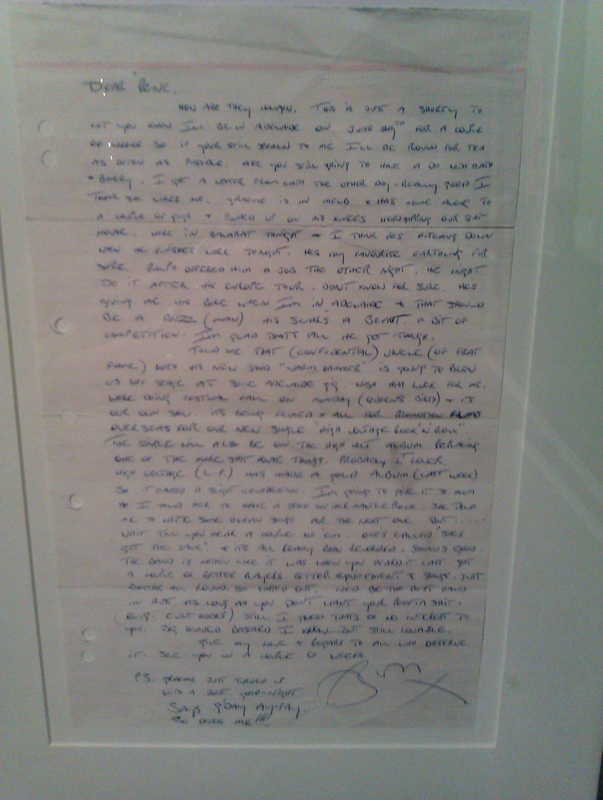 DEAR
HOW ARE THEY HANGIN. THIS IS JUST A SHORTY TO
LET YOU KNOW I'LL BE IN ADELAIDE ON JUNE FOR A COUPLE
OF WEEKS SO IF YOUR STILL SPEAKIN TO ME I'LL BE ROUND FOR TEA
AS OFTEN AS POSSIBLE. ARE YOU STILL GOING TO HAVE A DO WITH
+ BARRY. I GOT A LETTER FROM THE OTHER DAY - REALLY GOOD I
THINK SHE LIKES ME. GRAEME IS IN MELB + HAS COME ALONG TO
A COUPLE OF GIGS + UP ON HIS KNEES OUR
HOUSE. WERE IN BALLARAT TONIGHT + I THINK HES HITCHING DOWN
WHEN HE FINISHES WORK TONIGHT. HES MY FAVOURITE EARTHLING FOR
SURE. OFFERED HIM A JOB THE OTHER NIGHT. HE MIGHT
DO IT AFTER HIS EUROPE TOUR. DON'T KNOW FOR SURE. HES
GIVING ME HIS BIKE WHEN I'M IN ADELAIDE + THAT SHOULD
BE A BUZZ (MAN) HIS SCARS A BEAUT. A BIT OF
COMPETITION. I'M GLAD THAT'S ALL HE GOT THOUGH.
TOLD ME THAT (CONFIDENTIAL) UNCLE (OF FRAT
FAME) WITH HIS NEW BAND IS GOING TO BLOW
US OFF STAGE AT SOME ADELAIDE GIG. WISH HIM LUCK FOR ME.
WERE DOING FESTIVAL HALL ON MONDAY (QUEENS BIRTH) + ITS
OUR OWN SHOW. ITS BEING FILMED + ALL FOR PROMOTION
OVERSEAS FOR OUR NEW SINGLE "HIGH VOLTAGE ROCK'N'ROLL"
THE SINGLE WILL ALSO BE ON THE HIGH VOLT ALBUM REPLACING
ONE OF THE MORE SHIT HOUSE THINGS. PROBABLY
HIGH VOLTAGE (L.P) HAS MADE A GOLD ALBUM (LAST WEEK)
SO IT CALLED A SLIGHT CELEBRATION. I'M GOING TO GIVE IT TO MUM
SO I TOLD HER TO MAKE A SPACE ON HER MANTLEPIECE. SHE TOLD
ME TO WRITE SOME CLEAN SONGS FOR THE NEXT ONE. BUT . . . . .
WAIT TILL YOU HEAR A COUPLE OF 'EM. ONES CALLED "SHES
GOT THE JACK" + ITS ALL READY BEEN RECORDED. SOUNDS GOOD.
THE BAND IS NOTHIN LIKE IT WAS WHEN YOU HEARD IT LAST. GOT
A COUPLE OF BETTER PLAYERS BETTER EQUIPTMENT & SONGS. JUST
BETTER ALL ROUND. SO WATCH OUT. WE'LL BE THE BEST BAND
IN AUST AS LONG AS YOU DON'T WANT YOUR SHIT.
STILL I THINK THAT'S OF NO INTEREST TO
YOU. BIG HEADED BASTARD I KNOW BUT STILL LOVABLE.
GIVE MY LOVE + REGARDS TO ALL WHO DESERVE
IT. SEE YOU IN A COUPLE OF WEEKS
P.S. GRAEME JUST TURNED UP
WITH A GOOD-NIGHT.
SAYS G'DAY
SO DOES ME!!!